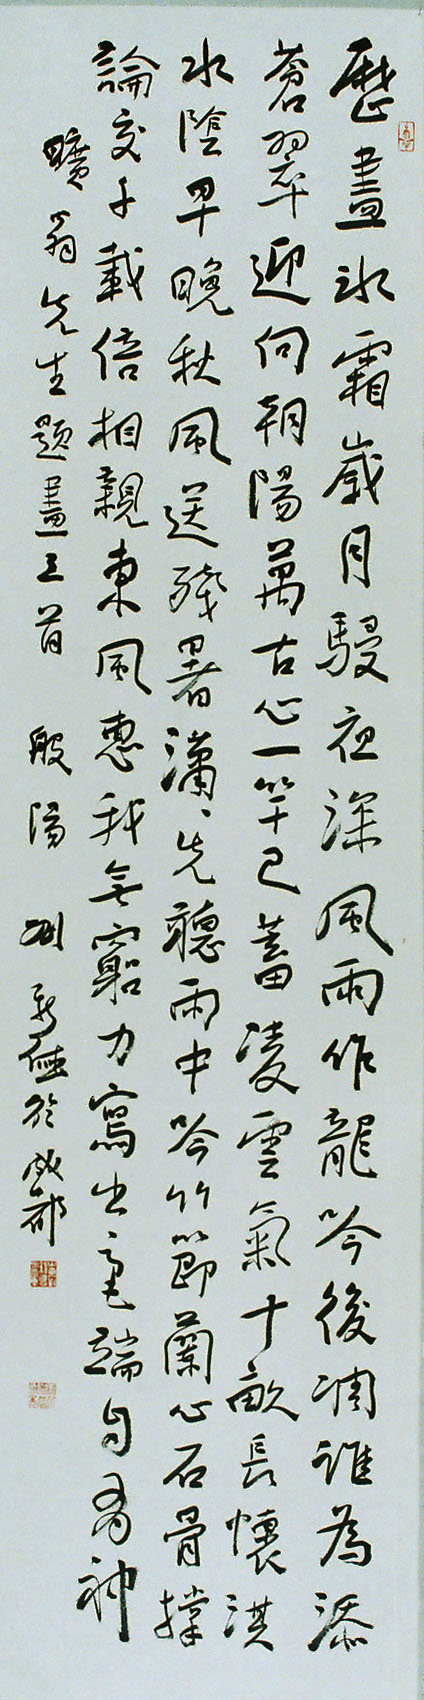 歷盡冰霜歲月駸夜深風雨作龍吟後凋誰為添
蒼翠迎向朝陽萬古心一竿已蓄凌雲氣十畝長懷淇
水陰早晚秋風送殘暑瀟、先聽雨中吟竹節蘭心石骨撐
論交千載倍相親東風惠我無窮力寫出毫端自有神
曠翁先生題畫三首 般陽 劉 於成都